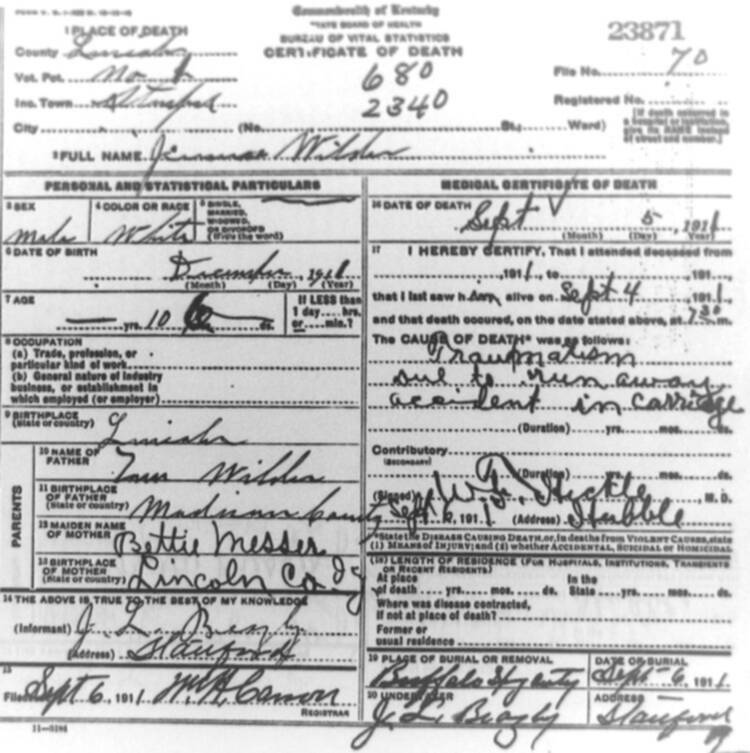 Commonwealth of Kentucky
STATE BOARD OF HEALTH
BUREAU OF VITAL STATISTICS
CERTIFICATE OF DEATH
23871
1 PLACE OF DEATH
County Lincoln
Vot. Pct. No 1
Inc. Town
City (No. St.; Ward)
680
2340
File No. 70
Registered No.
[If death occurred in a hospital or institution, give its NAME instead of street and number.]
2 FULL NAME Wilder
PERSONAL AND STATISTICAL PARTICULARS
3 SEX
Male
4 COLOR OR RACE
White
5 SINGLE, MARRIED, WIDOWED, OR DIVORCED (Write the word)
6 DATE OF BIRTH
December, 191
(Month) (Day) (Year)
7 AGE
yrs. 10 ds.
If LESS than 1 day....hrs. or....min.?
8 OCCUPATION
(a) Trade, profession, or particular kind of work
(b) General nature of industry business, or establishment in which employed (or employer)
9 BIRTHPLACE
(State or country) Lincoln
PARENTS
10 NAME OF FATHER Wilder
11 BIRTHPLACE OF FATHER (State or country) Madison County
12 MAIDEN NAME OF MOTHER Bettie Messer
13 BIRTHPLACE OF MOTHER (State or country) Lincoln Co. Ky
14 THE ABOVE IS TRUE TO THE BEST OF MY KNOWLEDGE
(Informant) J. L. Beazly
(Address) Stanford
15
Filed Sept 6, 1911
REGISTRAR
11—3184
MEDICAL CERTIFICATE OF DEATH
16 DATE OF DEATH
Sept 5, 1911
(Month) (Day) (Year)
17 I HEREBY CERTIFY, That I attended deceased from
, 191 , to , 191 ,
that I last saw him alive on Sept 4, 1911,
and that death occured, on the date stated above, at 7 30 m.
The CAUSE OF DEATH* was as follows:
Traumatism
due to run away
accident in carriage
(Duration) yrs. mos. ds.
Contributory
(SECONDARY)
(Duration) yrs. mos. ds.
(Signed) M. D.
Sept 6, 1911 (Address) Hubble
*State the DISEASE CAUSING DEATH, or, in deaths from VIOLENT CAUSES, state (1) MEANS OF INJURY; and (2) whether ACCIDENTAL, SUICIDAL or HOMICIDAL
(18) LENGTH OF RESIDENCE (FOR HOSPITALS, INSTITUTIONS, TRANSIENTS OR RECENT RESIDENTS)
At place of death yrs. mos. ds. In the State yrs. mos. ds.
Where was disease contracted, if not at place of death?
Former or usual residence
19 PLACE OF BURIAL OR REMOVAL
Buffalo
DATE OF BURIAL
Sept 6, 1911
20 UNDERTAKER
J. L. Beazly
ADDRESS
Stanford
Ky